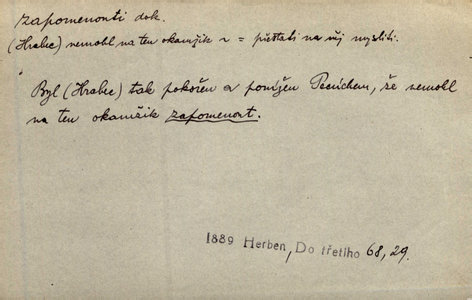 zapomenonti dok.
(Hrabec) nemohl na ten okamžik ~ = přestati na něj mysliti.
Byl (Hrabec) tak pokořen a ponížen Pecúchem, že nemohl
na ten okamžik zapomenont.
1889 Herben, Do třetího 68, 29.